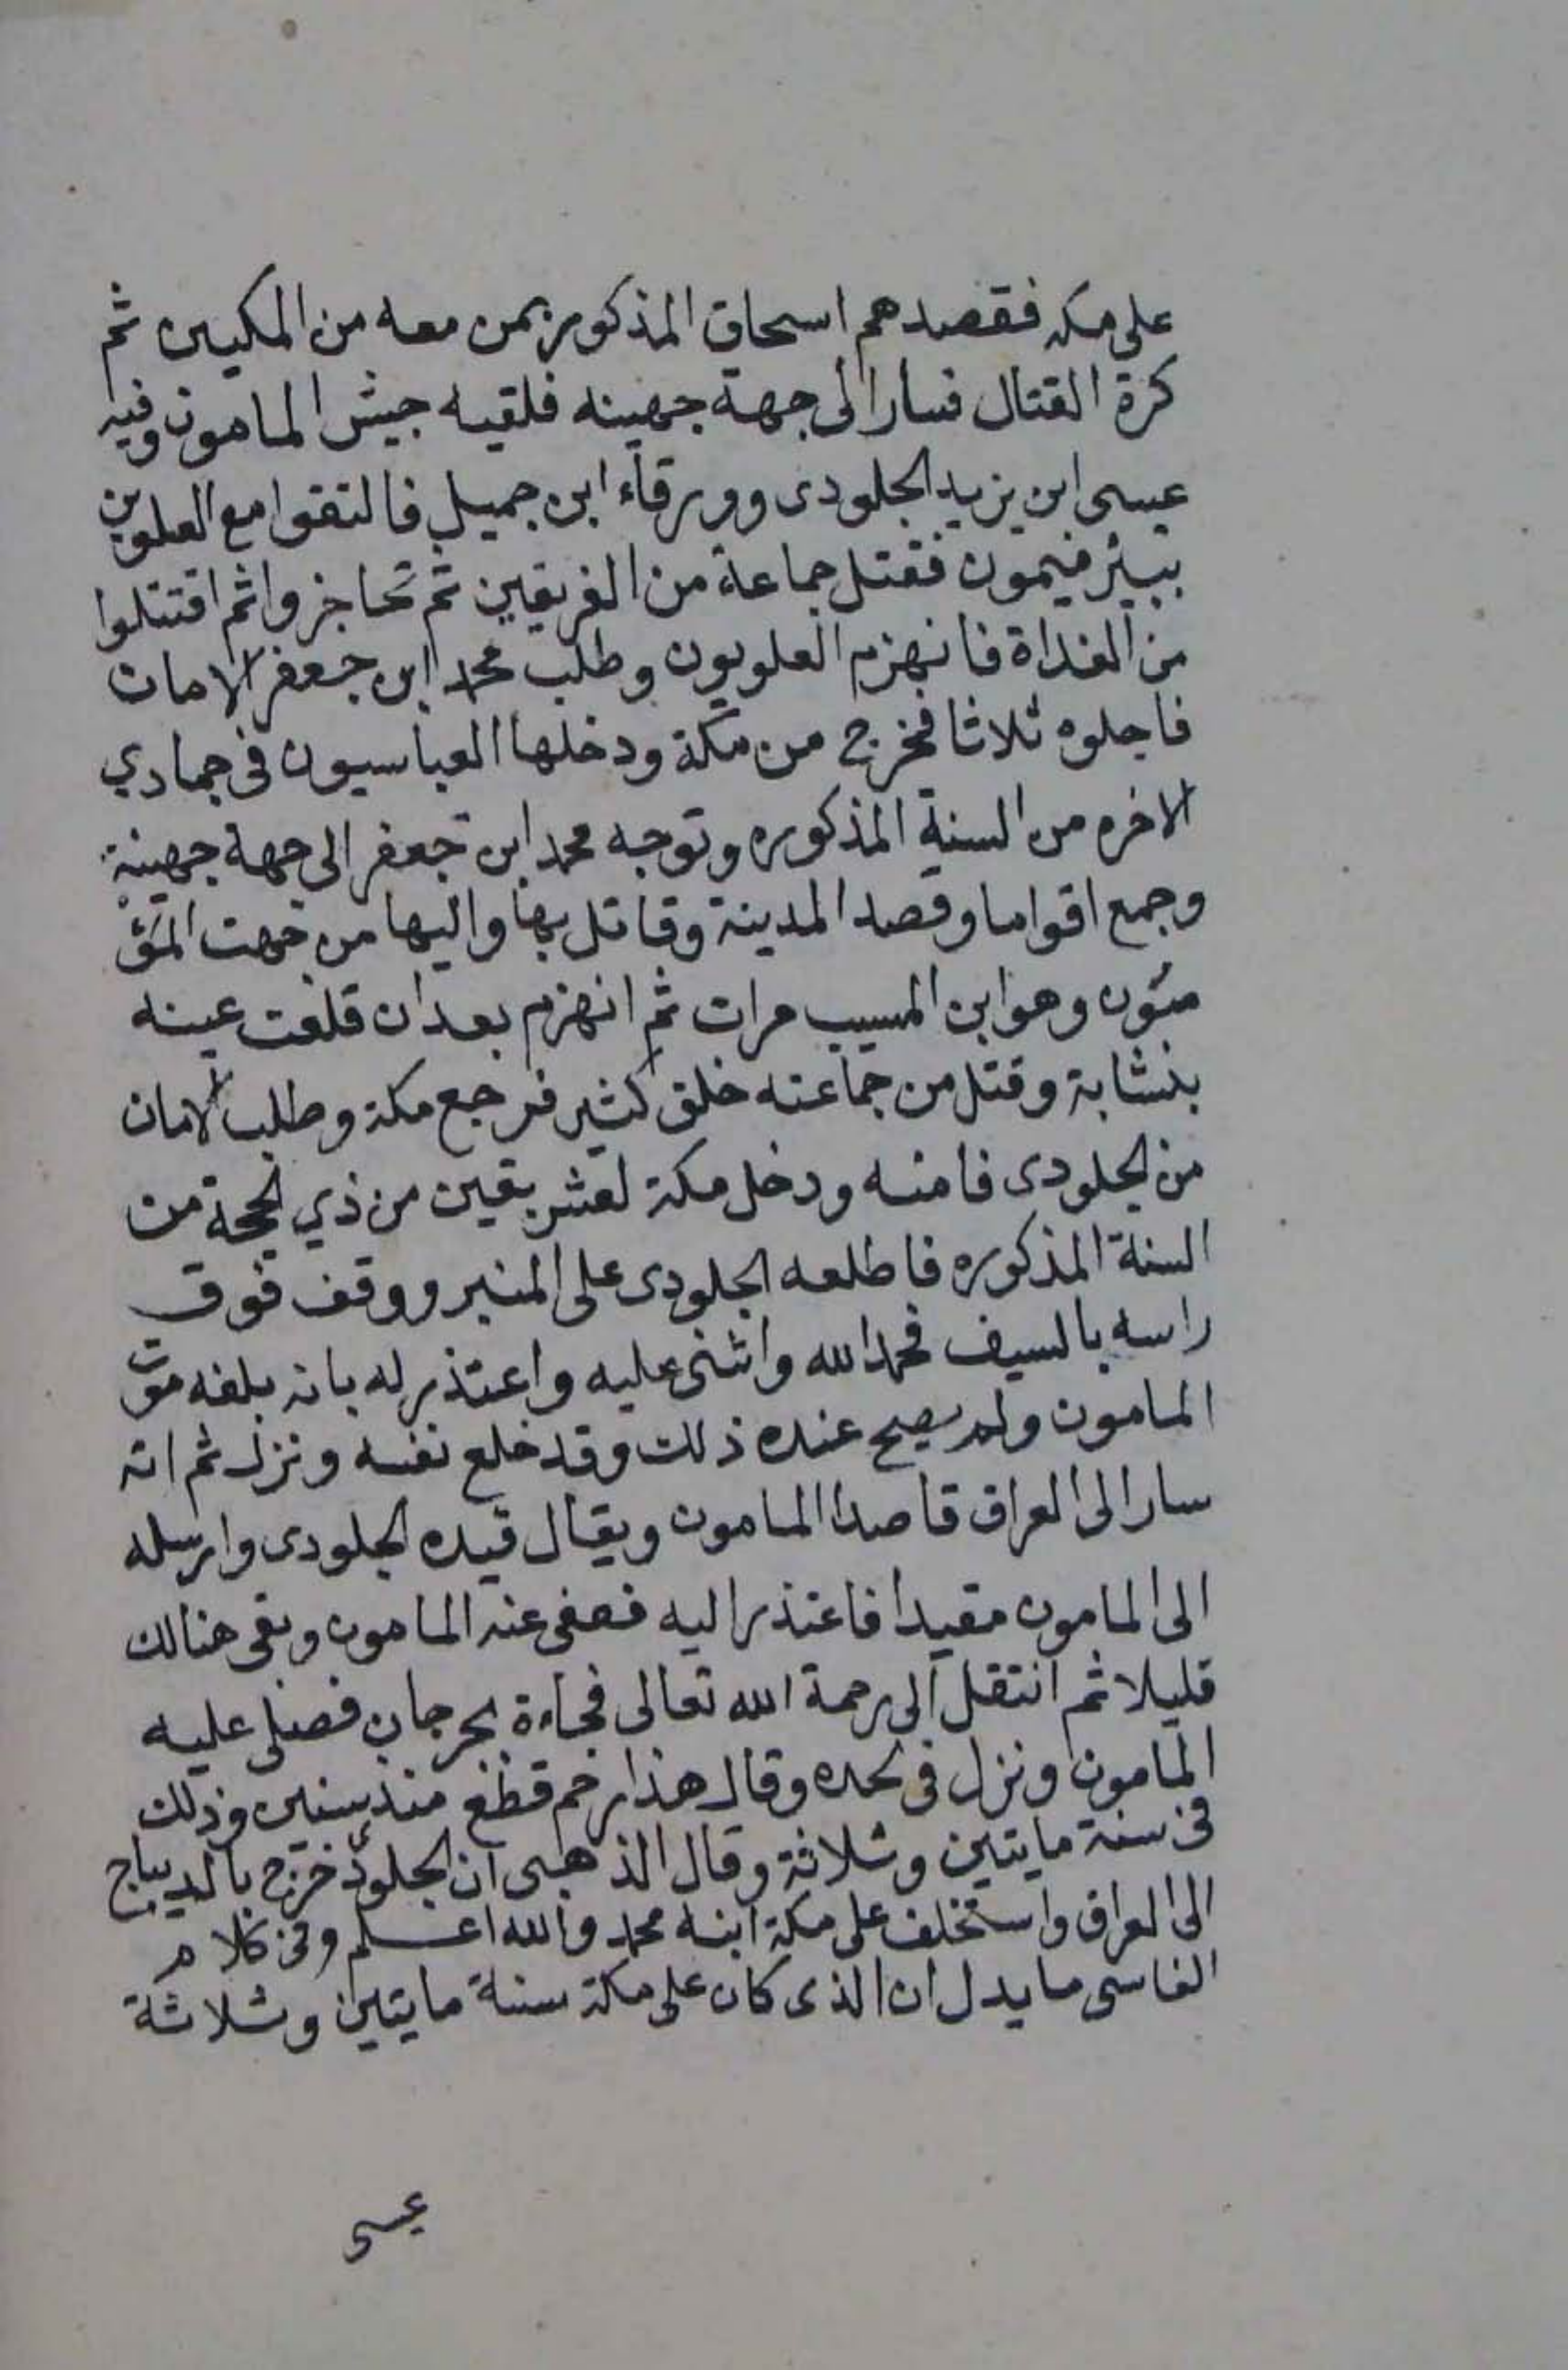 على مكه فقصدهم اسحاق المذكور بمن معه من المكيين ثم
كرة القتال فسار الى جهة جهينه فلقيه جيش المامون وفيه
عيسى ابن يزيد الجلودى وورقاء ابن جميل فالتقوا مع العلوين
ببير ميمون فقتل جماعة من الفريقين ثم تحاجزوا ثم اقتتلوا
من الغداة فانهزم العلويون وطلب محمد ابن جعفر الامان
فاجلوه ثلاثا فخرج من مكة ودخلها العباسيون فى جمادي
الاخره من السنة المذكوره وتوجه محمد ابن جعفر الى جهة جهينة
وجمع اقواما وقصد المدينة وقاتل بها واليها من جهت
وهو ابن المسيب مرات ثم انهزم بعد ان قلعت عينه
بنشابة وقتل من جماعته خلق كثير فرجع مكة وطلب الامان
من الجلودى فامنه ودخل مكة لعشر بقين من ذي الحجة من
السنة المذكوره فاطلعه الجلودى على المنبر ووقف فوق
راسه بالسيف فحمد الله واثنى عليه واعتذر له بانه بلغه موت
المامون ولم يصح عنده ذلك وقد خلع نفسه ونزل ثم انه
سار الى العراق قاصدا المامون ويقال قيده الجلودى وارسله
الى المامون مقيدا فاعتذر اليه فعفى عنه المامون وبقى هنالك
قليلا ثم انتقل الى رحمة الله تعالى فجاءة بجرجان فصلى عليه
المامون ونزل فى لحده وقال هذا رحم قطع منذ سنين وذلك
فى سنة مايتين وثلاثة وقال الذهبى ان الجلودى خرج بالديباج
الى العراق واستخلف على مكة ابنه محمد والله اعلم وفى كلام
الفاسى ما يدل ان الذى كان على مكة سنة مايتين وثلاثة
عيسى